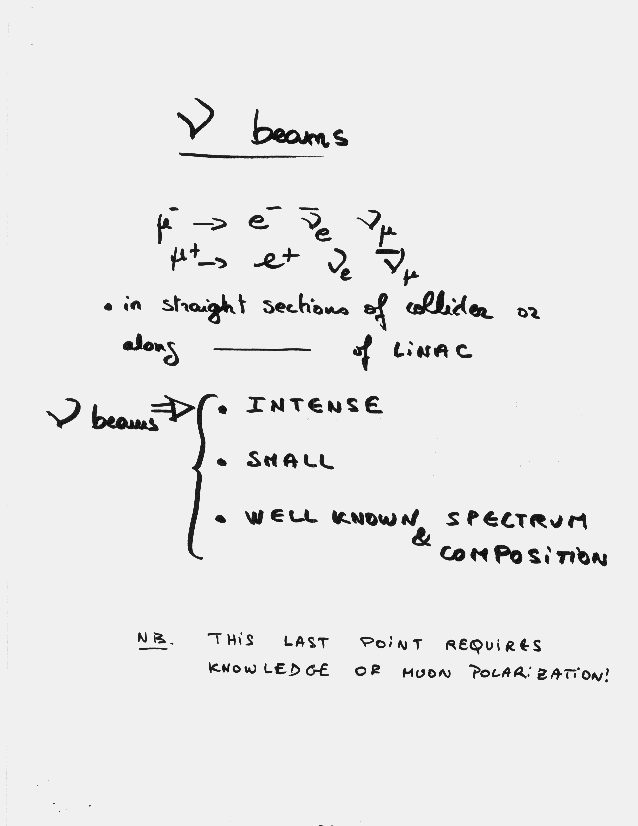 ν beams
μ⁻ → e⁻ ν̄e νμ
μ⁺ → e⁺ νe ν̄μ
• in straight sections of collider or
along ——— of LiNAC
ν beams ⇒ { • INTENSE
• SMALL
• WELL KNOWN SPECTRUM
& COMPOSITION
NB. THIS LAST POINT REQUIRES
KNOWLEDGE OR MUON POLARIZATION!